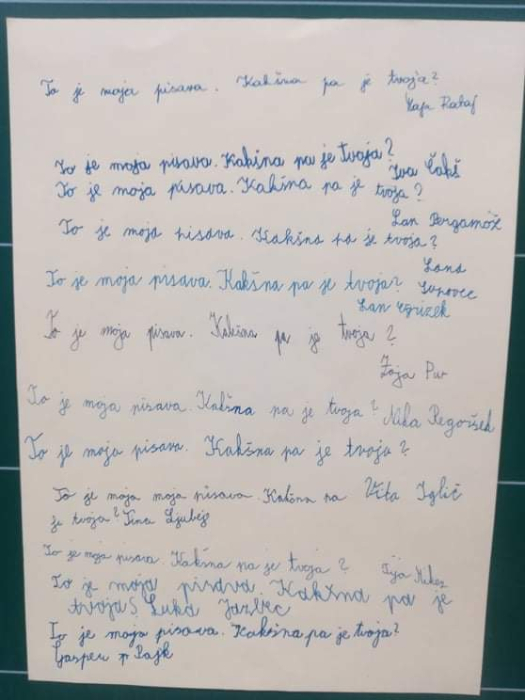 To je moja pisava. Kakšna pa je tvoja?
Rataj
To je moja pisava. Kakšna pa je tvoja?
Iva Čakš
To je moja pisava. Kakšna pa je tvoja?
Lan Pergamož
To je moja pisava. Kakšna pa je tvoja?
Lana
To je moja pisava. Kakšna pa je tvoja?
Lan
To je moja pisava. Kakšna pa je tvoja?
Zoja Pur
To je moja pisava. Kakšna pa je tvoja? Nika Pegoršek
To je moja pisava. Kakšna pa je tvoja?
To je moja moja pisava. Kakšna pa Vita Iglič
je tvoja? Tina Ljubej
To je moja pisava. Kakšna pa je tvoja?
To je moja pisava Kakšna pa je
tvoja? Luka
To je moja pisava. Kakšna pa je tvoja?
Gasper Pajk